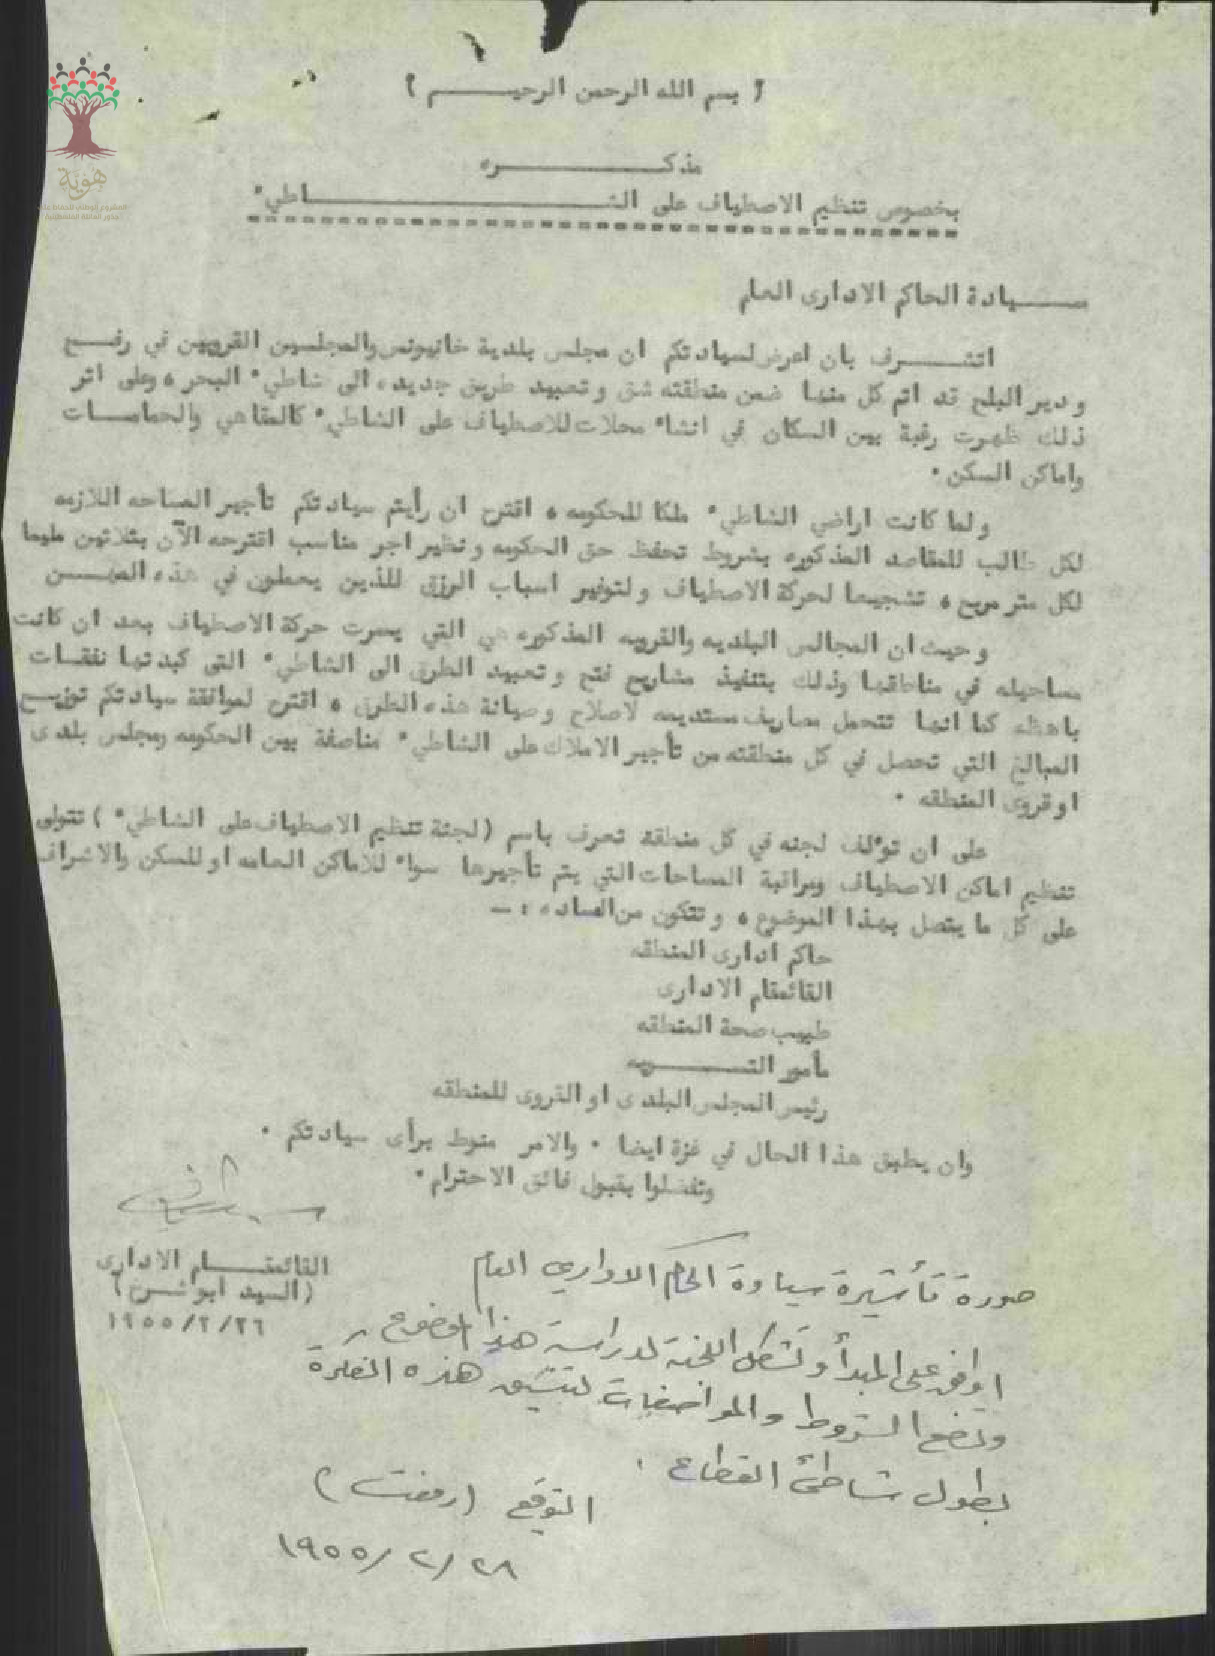 هوية
( بسم الله الرحمن الرحيم )
مذكره
بخصوص تنظيم الاصطياف على الشاطيء
سيادة الحاكم الادارى العام
اتشرف بان اعرض لسيادتكم ان مجلس بلدية خانيونس والمجلسين القرويين في رفح
ودير البلح قد اتم كل منها ضمن منطقته شق وتعبيد طريق جديده الى شاطيء البحر ٥ وعلى اثر
ذلك ظهرت رغبة بين السكان في انشاء محلات للاصطياف على الشاطيء كالمقاهي والحمامات
واماكن السكن .
ولما كانت اراضي الشاطيء ملكا للحكومه ٥ اقترح ان رأيتم سيادتكم تأجير المساحه اللازمه
لكل طالب للمقاصد المذكوره بشروط تحفظ حق الحكومه ونظير اجر مناسب اقترحه الآن بثلاثين مليما
لكل متر مربع ٥ تشجيعا لحركة الاصطياف ولتوفير اسباب الرزق للذين يعملون في هذه المهن
وحيث ان المجالس البلديه والقرويه المذكوره هي التي يسرت حركة الاصطياف بعد ان كانت
مستحيله في مناطقها وذلك بتنفيذ مشاريع فتح وتعبيد الطرق الى الشاطيء التى كبدتها نفقات
باهظه كما انها تتحمل مصاريف مستديمه لاصلاح وصيانة هذه الطرق ٥ اقترح لموافقة سيادتكم توزيع
المبالغ التي تحصل في كل منطقته من تأجير الاملاك على الشاطيء مناصفة بين الحكومه ومجلس بلدى
او قروى المنطقه .
على ان تؤلف لجنه في كل منطقة تعرف باسم ( لجنة تنظيم الاصطياف على الشاطيء ) تتولى
تنظيم اماكن الاصطياف ومراقبة المساحات التي يتم تأجيرها سواء للاماكن العامه او للسكن والاشراف
على كل ما يتصل بهذا الموضوع ٥ وتتكون من الساده :ـ
حاكم ادارى المنطقه
القائمقام الادارى
طبيب صحة المنطقه
مأمور التسويه
رئيس المجلس البلدى او القروى للمنطقه
وان يطبق هذا الحال في غزة ايضا . والامر منوط برأى سيادتكم .
وتفضلوا بقبول فائق الاحترام .
القائمقام الادارى
(السيد ابو شرخ)
١٩٥٥/٢/٢٦
صورة تأشيرة سيادة الحاكم الادارى العام
اوافق على المبدأ وتشكل اللجنة لدراسة هذا الموضوع
وتضع الشروط والمواصفات لتنسيق هذه الفكرة
بطول شاطئ القطاع .
التوقيع (رفعت)
١٩٥٥/٢/٢٨